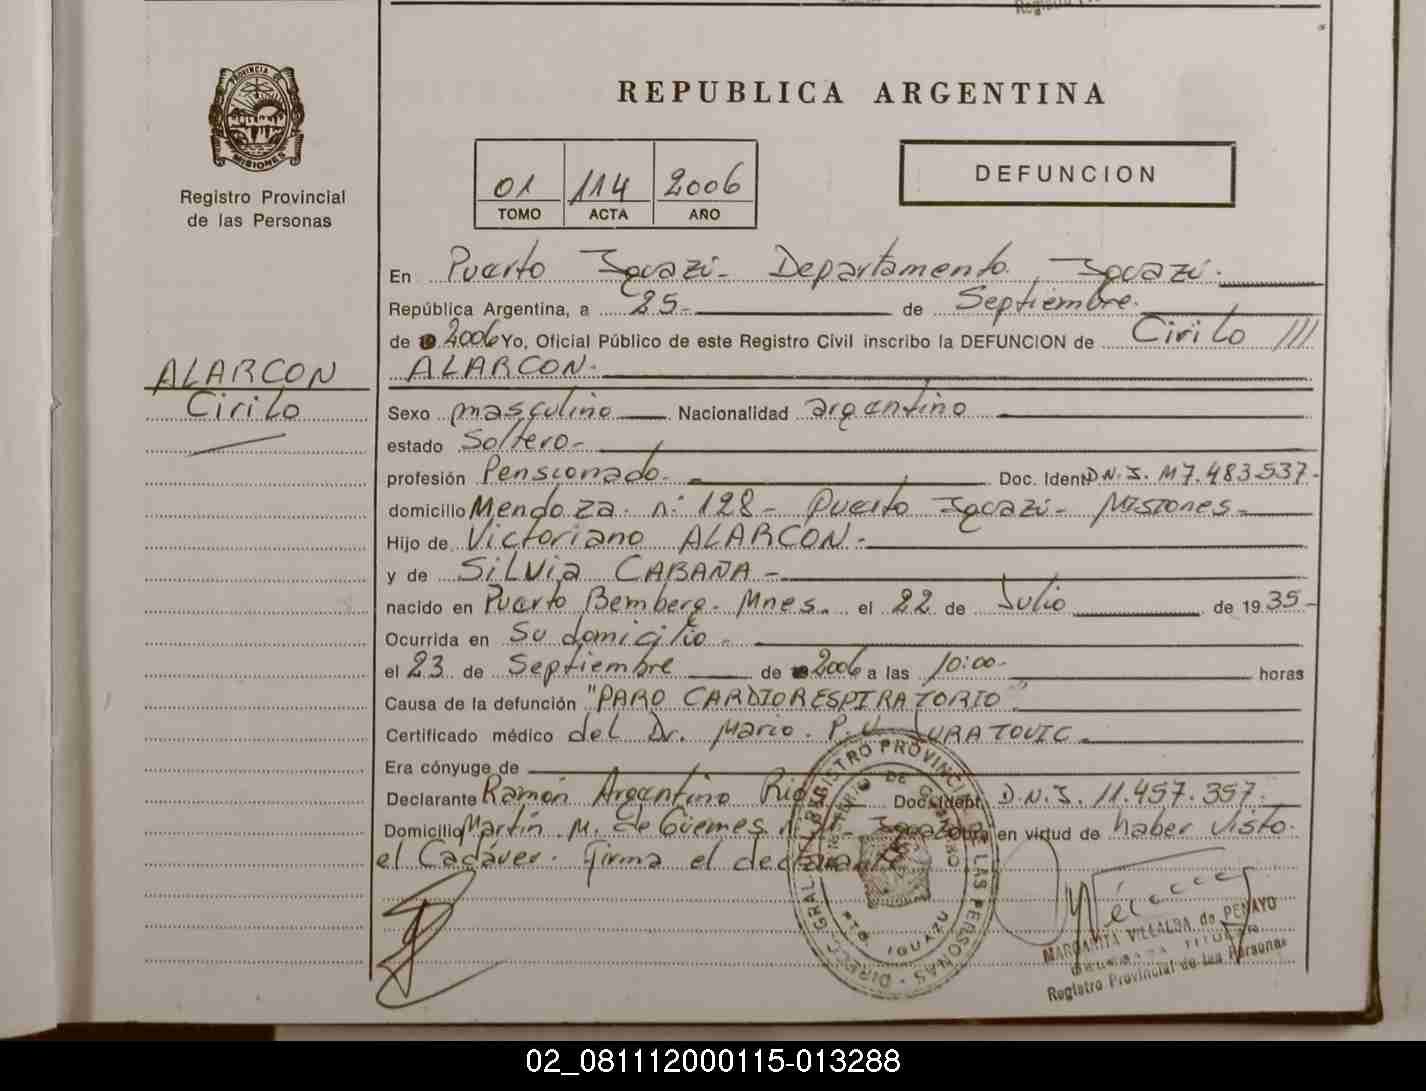 PROVINCIA DE
MISIONES
Registro Provincial
de las Personas
REPUBLICA ARGENTINA
01 114 2006
TOMO ACTA AÑO
DEFUNCION
En Puerto Iguazú- Departamento Iguazú.
República Argentina, a 25- de Septiembre.
de 2006 Yo, Oficial Público de este Registro Civil inscribo la DEFUNCION de Cirilo ///
ALARCON.
ALARCON
Cirilo
Sexo masculino Nacionalidad argentino
estado Soltero-
profesión Pensionado. Doc. Ident D.N.I. M7.483.537-
domicilio Mendoza. n: 128- Puerto Iguazú- Misiones-
Hijo de Victoriano ALARCON-
y de Silvia CABAÑA-
nacido en Puerto Bemberg. Mnes. el 22 de Julio de 1935-
Ocurrida en Su domicilio-
el 23 de Septiembre de 2006 a las 10:00- horas
Causa de la defunción "PARO CARDIORESPIRATORIO"
Certificado médico del Dr. Mario. P.
Era cónyuge de
Declarante Ramón Argentino Doc. Ident. D.N.I. 11.457.357.
Domicilio Martín M. de Güemes en virtud de haber visto
el Cadáver. firma el declarante
DIREC. GRAL. DEL REGISTRO PROVINCIAL DE LAS PERSONAS
PTO. IGUAZU
MARGARITA VILLALBA de PENAYO
Registro Provincial de las Personas
02_081112000115-013288